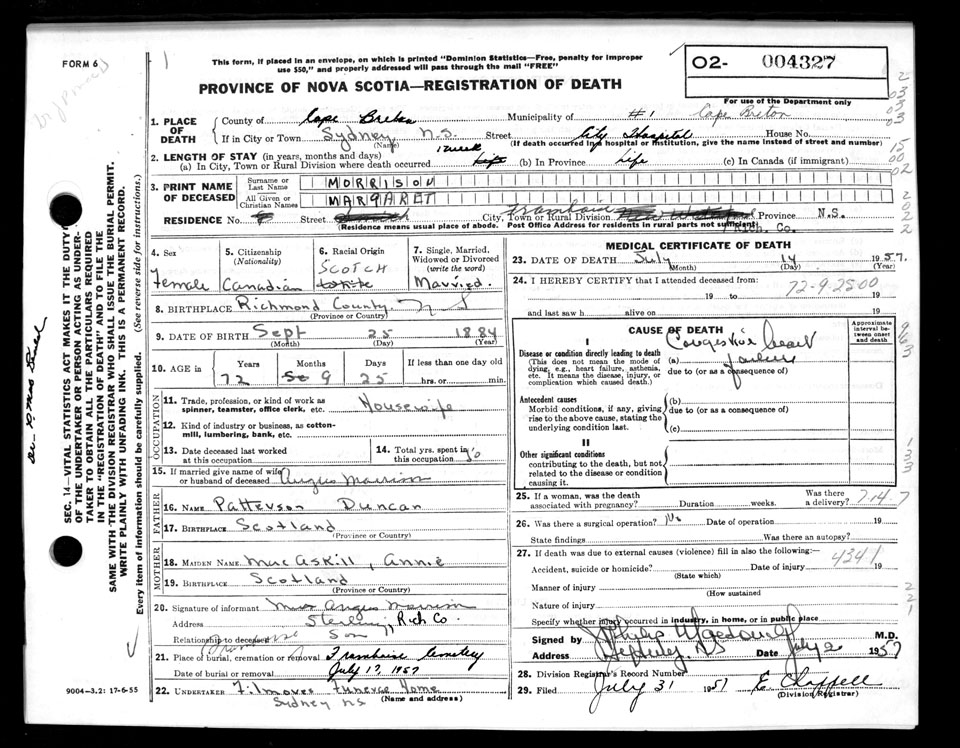 FORM 6
This form, if placed in an envelope, on which is printed "Dominion Statistics—Free, penalty for improper
use $50," and properly addressed will pass through the mail "FREE"
O2- 004327
For use of the Department only
PROVINCE OF NOVA SCOTIA—REGISTRATION OF DEATH
1. PLACE OF DEATH
County of Cape Breton Municipality of #1 Cape Breton
If in City or Town Sydney N.S. Street City Hospital House No.
(Name) (If death occurred in a hospital or institution, give the name instead of street and number)
2. LENGTH OF STAY (in years, months and days) 1 week
(a) In City, Town or Rural Division where death occurred Life (b) In Province Life (c) In Canada (if immigrant)
3. PRINT NAME OF DECEASED
Surname or Last Name MORRISON
All Given or Christian Names MARGARET
RESIDENCE No. Street City, Town or Rural Division Province N.S.
Rich. Co.
(Residence means usual place of abode. Post Office Address for residents in rural parts not sufficient)
4. Sex 5. Citizenship 6. Racial Origin 7. Single, Married,
(Nationality) SCOTCH Widowed or Divorced
(write the word)
Female Canadian White Married.
8. BIRTHPLACE Richmond County N S
(Province or County)
9. DATE OF BIRTH Sept 25 1884
(Month) (Day) (Year)
10. AGE in Years Months Days If less than one day old
72 9 25 hrs. or min.
OCCUPATION
11. Trade, profession, or kind of work as
spinner, teamster, office clerk, etc. Housewife
12. Kind of industry or business, as cotton-
mill, lumbering, bank, etc.
13. Date deceased last worked
at this occupation
14. Total yrs. spent in
this occupation 50
15. If married give name of wife
or husband of deceased Angus Morrison
FATHER
16. NAME Patterson Duncan
17. BIRTHPLACE Scotland
(Province or Country)
MOTHER
18. MAIDEN NAME MacAskill, Annie
19. BIRTHPLACE Scotland
(Province or Country)
20. Signature of informant Angus Morrison
Address Stirling, Rich Co.
Relationship to deceased Son
21. Place of burial, cremation or removal Framboise Cemetery
Date of burial or removal July 17 1957
22. UNDERTAKER Filmores Funeral Home
(Name and address)
Sydney N.S
MEDICAL CERTIFICATE OF DEATH
23. DATE OF DEATH July 14 1957.
(Month) (Day) (Year)
24. I HEREBY CERTIFY that I attended deceased from:
19 to 72-9-2500 19
and last saw h alive on 19
CAUSE OF DEATH
Approximate interval between onset and death
I
Disease or condition directly leading to death
(This does not mean the mode of
dying, e.g., heart failure, asthenia,
etc. It means the disease, injury, or
complication which caused death.)
(a) Congestive heart failure
due to (or as a consequence of)
Antecedent causes
Morbid conditions, if any, giving
rise to the above cause, stating the
underlying condition last.
(b)
due to (or as a consequence of)
(c)
II
Other significant conditions
contributing to the death, but not
related to the disease or condition
causing it.
25. If a woman, was the death
associated with pregnancy? Duration weeks. Was there a delivery? 7-14-7
26. Was there a surgical operation? No Date of operation 19
State findings Was there an autopsy?
27. If death was due to external causes (violence) fill in also the following:— 4341
Accident, suicide or homicide? Date of injury 19
(State which)
Manner of injury
(How sustained
Nature of injury
Specify whether injury occurred in industry, in home, or in public place
Signed by M.D.
Address N S Date July 1957
28. Division Registrar's Record Number
29. Filed July 31 1957 E Chappell
(Division Registrar)
SEC. 14—VITAL STATISTICS ACT MAKES IT THE DUTY
OF THE UNDERTAKER OR PERSON ACTING AS UNDER-
TAKER TO OBTAIN ALL THE PARTICULARS REQUIRED
IN THE "REGISTRATION OF DEATH" AND TO FILE THE
SAME WITH THE DIVISION REGISTRAR WHO SHALL ISSUE THE BURIAL PERMIT.
WRITE PLAINLY WITH UNFADING INK. THIS IS A PERMANENT RECORD.
Every item of information should be carefully supplied. (See reverse side for instructions.)
9004—3.2: 17-6-55